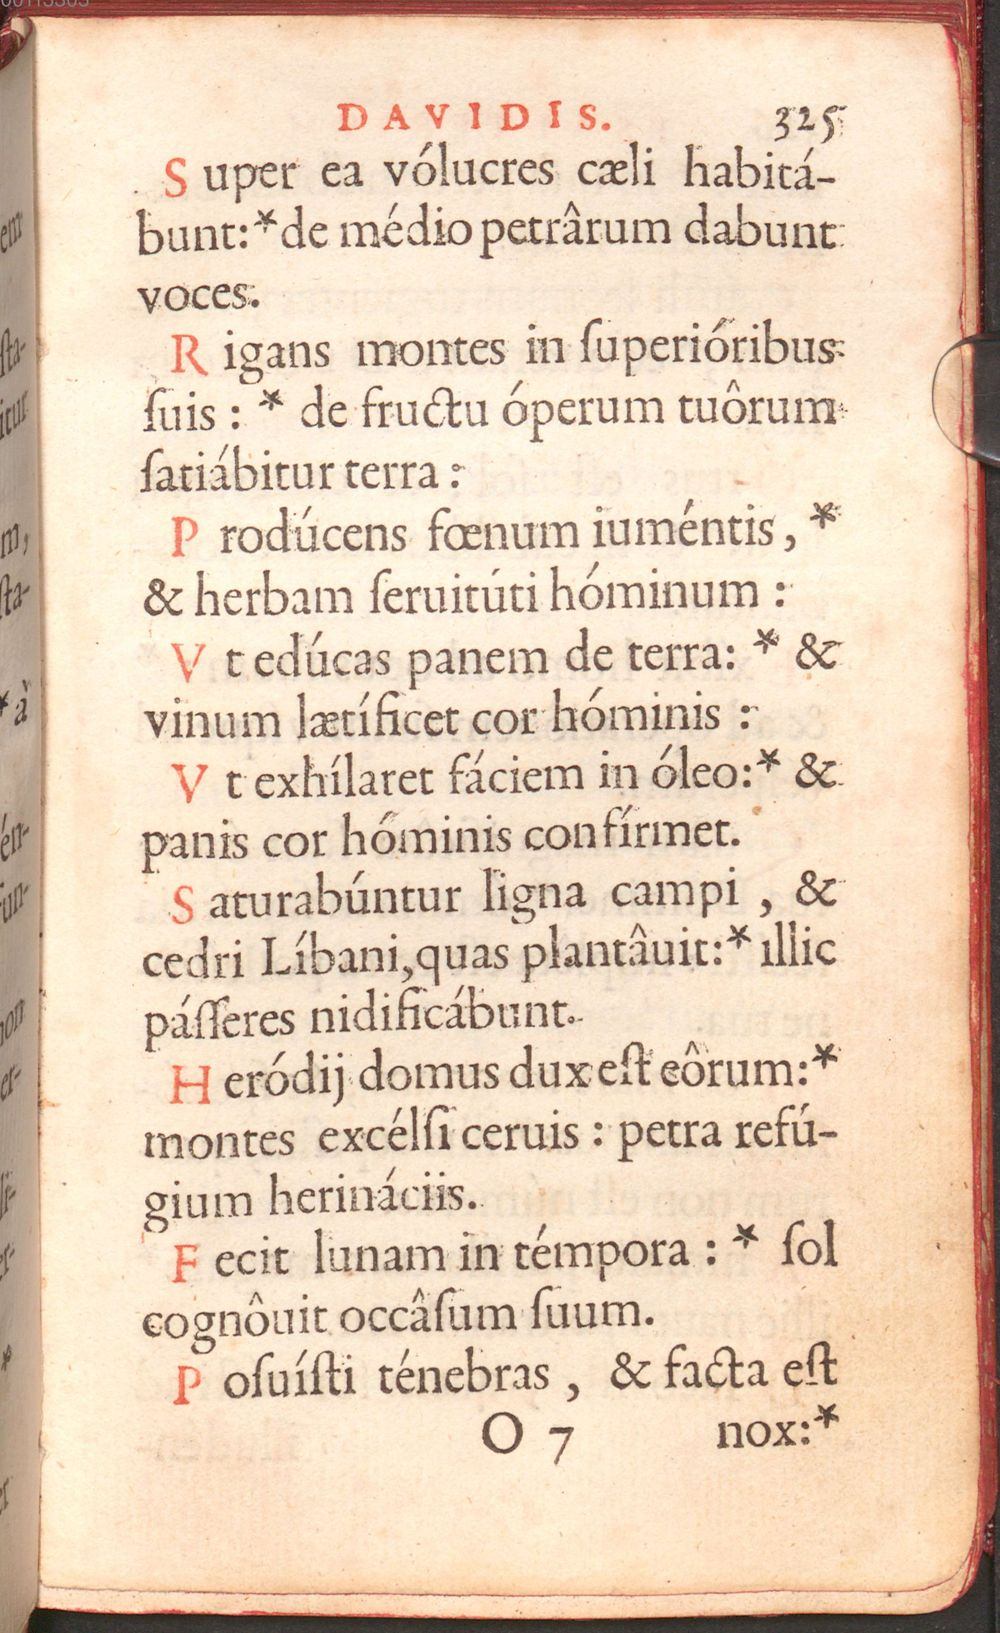 DAVIDIS. 325
Super ea vólucres cæli habitá-
bunt:* de médio petrârum dabunt
voces.
Rigans montes in ſuperióribus
ſuis : * de fructu óperum tuôrum
ſatiábitur terra :
Prodúcens fœnum iuméntis, *
& herbam ſeruitúti hóminum :
Vt edúcas panem de terra: * &
vinum lætíficet cor hóminis :
Vt exhílaret fáciem in óleo:* &
panis cor hóminis confírmet.
Saturabúntur ligna campi , &
cedri Líbani,quas plantâuit:* illic
páſſeres nidificábunt.
Heródij domus dux eſt eôrum:*
montes excélſi ceruis : petra refú-
gium herináciis.
Fecit lunam in témpora : * ſol
cognôuit occâſum ſuum.
Poſuíſti ténebras , & facta eſt
O 7 nox:*